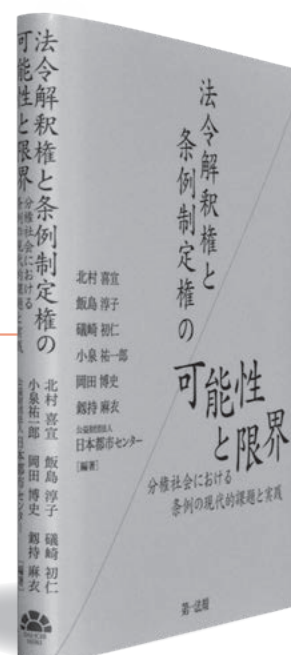 法令解釈権と
条例制定権の
可能性
と限界
分権社会における
条例の現代的課題と実践
北村 喜宣
飯島 淳子
礒崎 初仁
小泉 祐一郎
岡田 博史
釼持 麻衣
公益財団法人
日本都市センター
[編著]
第一法規
法令解釈権と条例制定権の
可能性と限界
分権社会における
条例の現代的課題と実践
北村 喜宣 飯島 淳子 礒崎 初仁
小泉 祐一郎 岡田 博史 釼持 麻衣
公益財団法人 日本都市センター [編著]